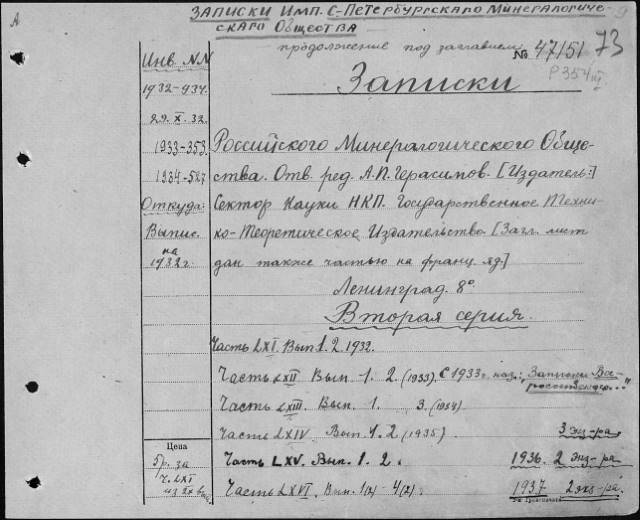 А
ЗАПИСКИ ИМП. С-ПЕТЕРБУРГСКАГО МИНЕРАЛОГИЧЕ-
СКАГО ОБЩЕСТВА
продолжение под заглавием
№ 47151 73
Р354
Инв. NN
Записки
1932-934.
29. X. 32.
1933-353
Российского Минералогического Обще-
1934-527
ства. Отв. ред. А.П. Герасимов. [Издатель:]
Откуда:
Сектор Науки НКП. Государственное Техни-
Выпис.
ко-Теоретическое Издательство [Загл. лист
на
1932 г.
дан также частью на франц. яз.]
Ленинград. 8°
Вторая серия.
Часть LXI. Вып. 1. 2. 1932.
Часть LXII Вып. 1. 2. (1933). С 1933 г. наз.: "Записки Все-
российского..."
Часть LXIII. Вып. 1. 3. (1934)
Часть LXIV. Вып. 1. 2 (1935) 3 экз-ра.
Цена
5 р. за
Часть LXV. Вып. 1. 2. 1936. 2 экз-ра.
ч. LXI
из 2х вып.
Часть LXVI. Вып. 1(2) - 4(2). 1937 2 экз-ра.